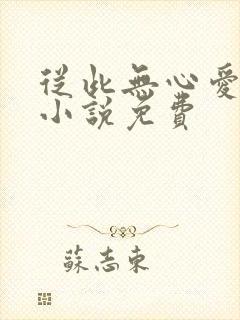 從此無心愛
小說免費
蘇志東